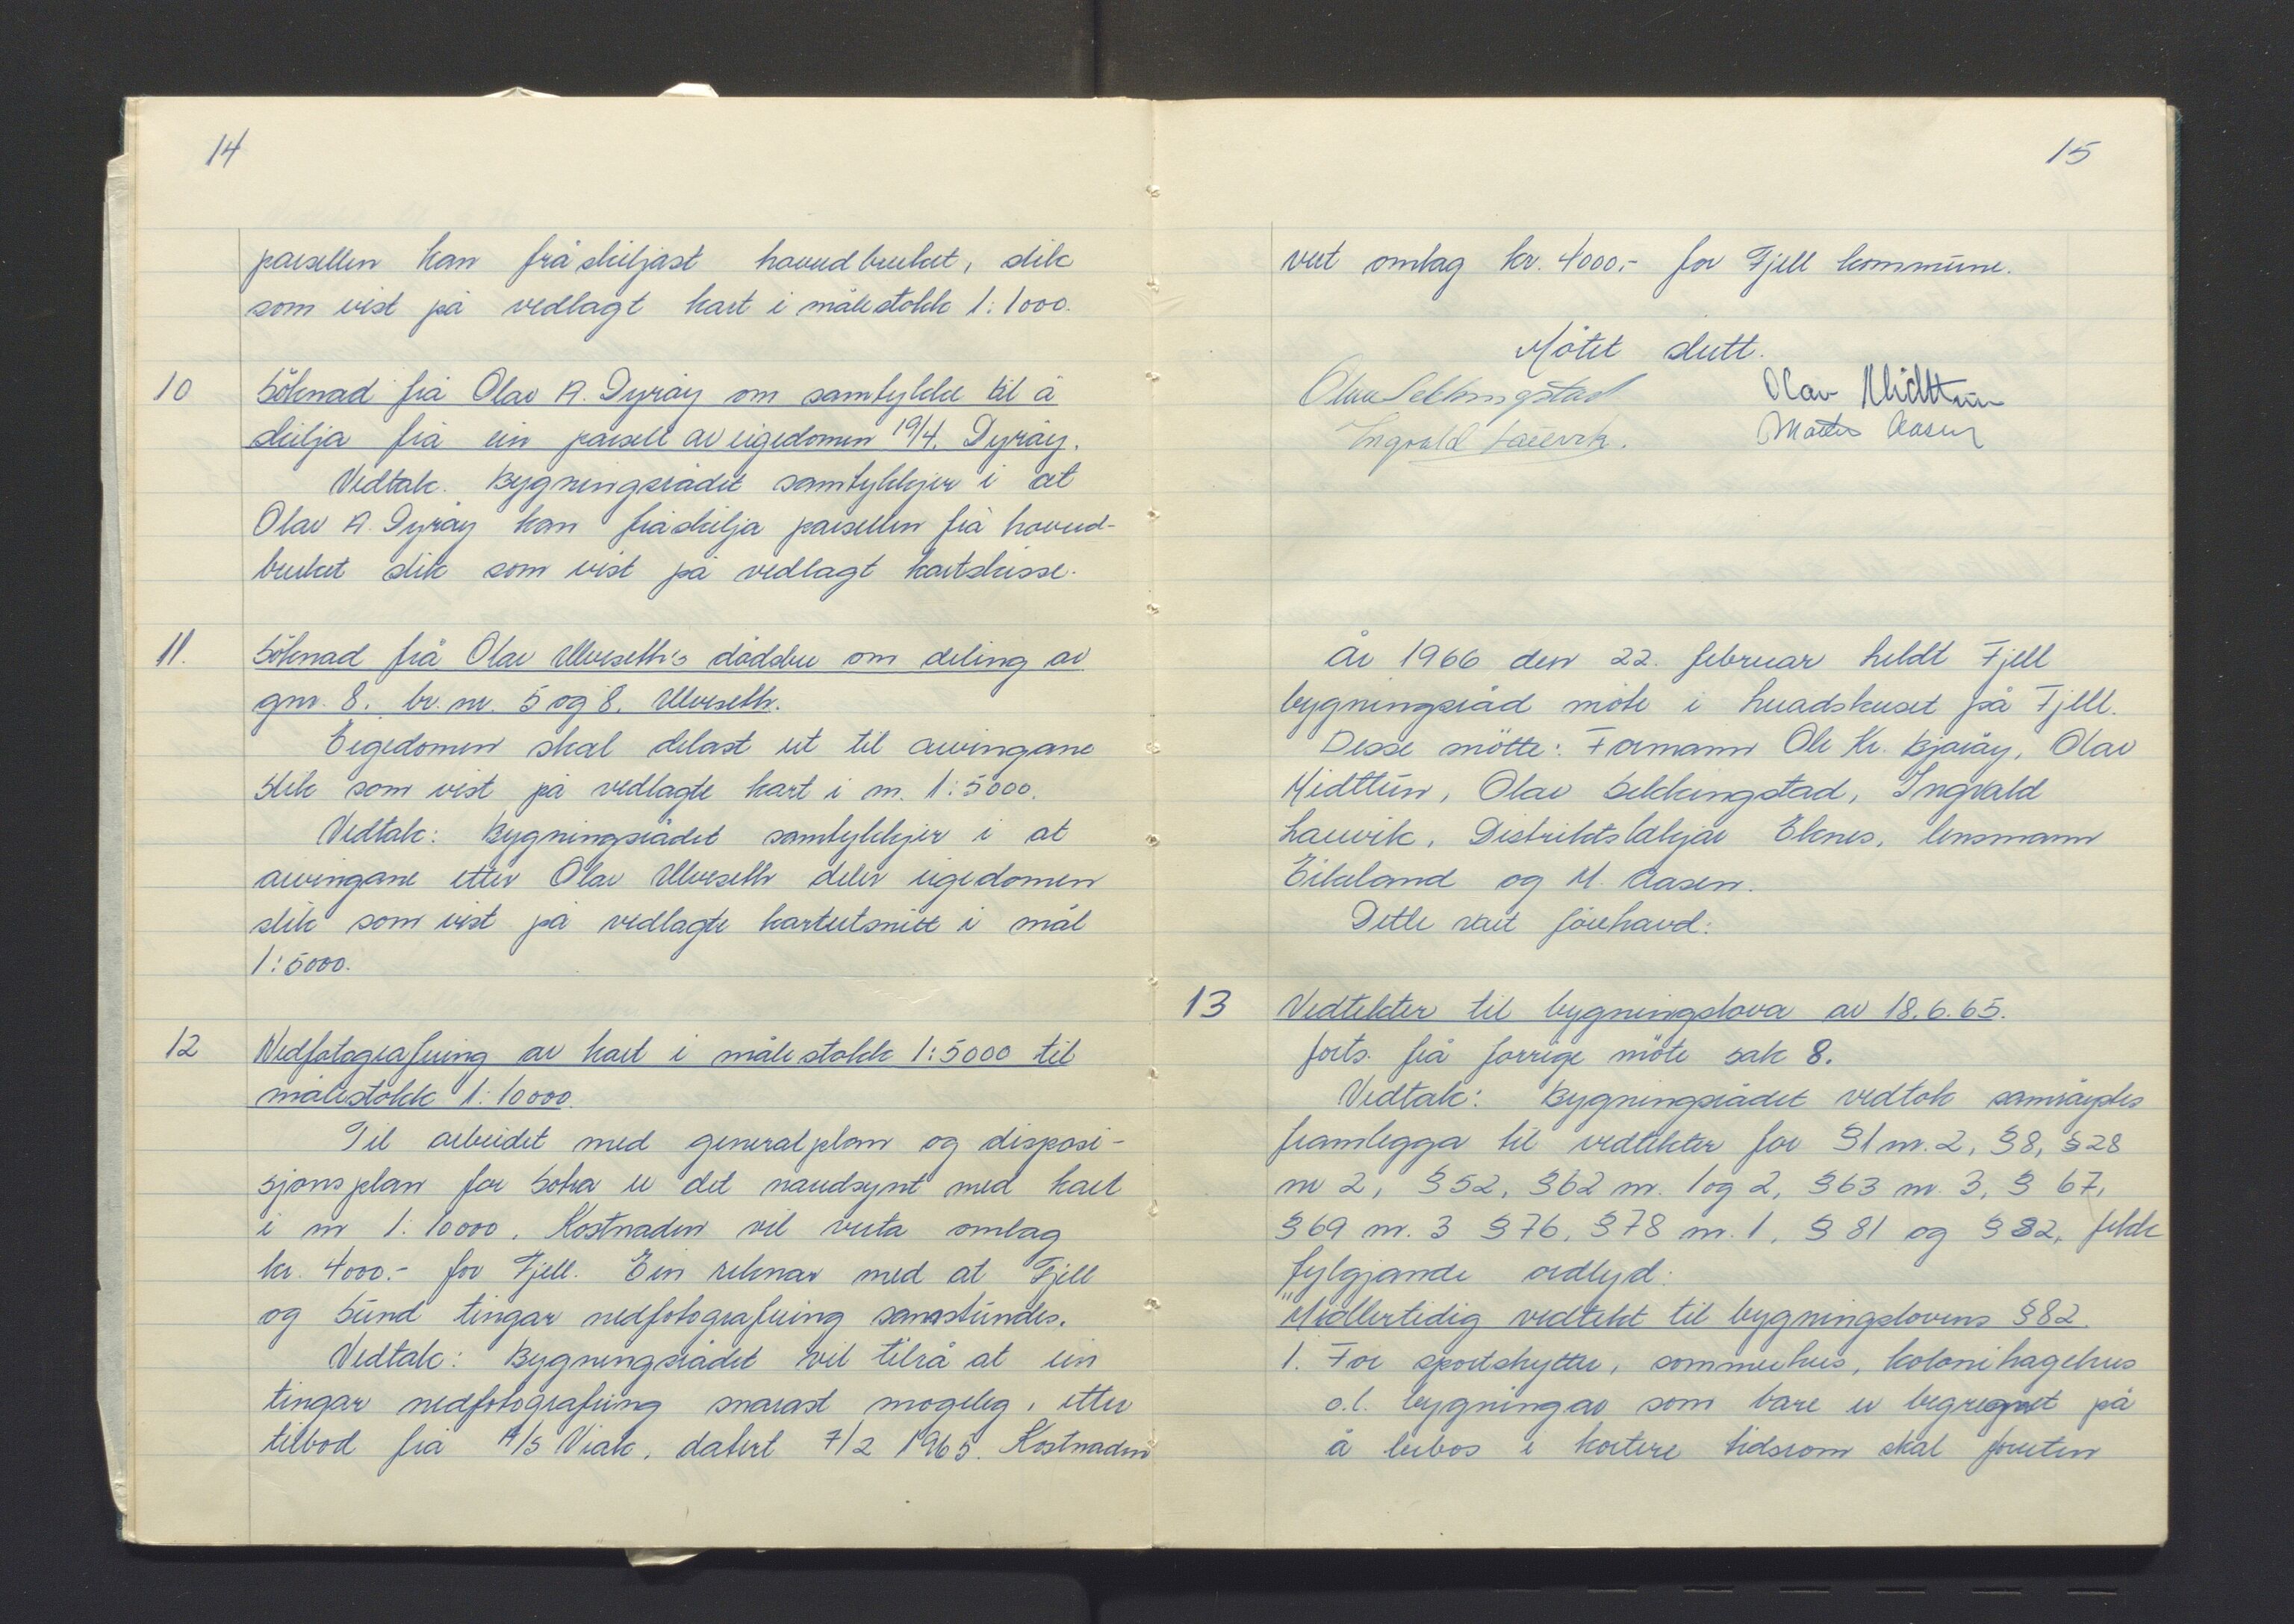 14
parsellen kan fråskiljast hovudbruket, slik
som vist på vedlagt kart i målestokk 1:1000.
10 Söknad frå Olav A. Dyröy om samtykke til å
skilja frå ein parsell av eigedomen 19/4, Dyröy.
Vedtak. Bygningsrådet samtykkjer i at
Olav A. Dyröy kan fråskilja parsellen frå hovud-
bruket slik som vist på vedlagt kartskisse.
11. Söknad frå Olav Ulveseth's dödsbu om deling av
gnr. 8. br. nr. 5 og 8. Ulveseth.
Eigedomen skal delast ut til arvingane
slik som vist på vedlagte kart i m. 1:5000.
Vedtak: Bygningsrådet samtykkjer i at
arvingane etter Olav Ulveseth deler eigedomen
slik som vist på vedlagte kartutsnitt i mål
1:5000.
12 Nedfotografering av kart i målestokk 1:5000 til
målestokk 1:10000.
Til arbeidet med generalplan og disposi-
sjonsplan for Sotra er det naudsynt med kart
i m 1:10000. Kostnaden vil verta omlag
kr. 4000.- for Fjell. Ein reknar med at Fjell
og Sund tingar nedfotografering samstundes.
Vedtak: Bygningsrådet vil tilrå at ein
tingar nedfotografering snarast mogeleg, etter
tilbod frå A/S Viak, datert 7/2 1965. Kostnaden
15
vert omlag kr. 4000.- for Fjell kommune.
Mötet slutt.
Olav Sekkingstad Olav Midttun
Ingvald Lauvik. Mattis Aasen
År 1966 den 22. februar heldt Fjell
bygningsråd möte i heradshuset på Fjell.
Desse mötte: Formann Ole Kr. Björöy, Olav
Midttun, Olav Sekkingstad, Ingvald
Lauvik, Distriktslækjar Eknes, lensmann
Eikeland og M. Aasen.
Dette vart förehavd:
13 Vedtekter til bygningslova av 18.6.65.
forts. frå forrige möte sak 8.
Vedtak: Bygningsrådet vedtok samröystes
framlegga til vedtekter for §1 nr. 2, §8, §28
nr 2, §52, §62 nr. 1 og 2, §63 nr. 3, § 67,
§69 nr. 3 §76, §78 nr. 1, § 81 og § 82, fekk
fylgjande ordlyd:
"Midlertidig vedtekt til bygningslovens §82.
1. For sportshytter, sommerhus, kolonihagehus
o.l. bygningar som bare er beregnet på
å bebos i kortere tidsrom skal foruten